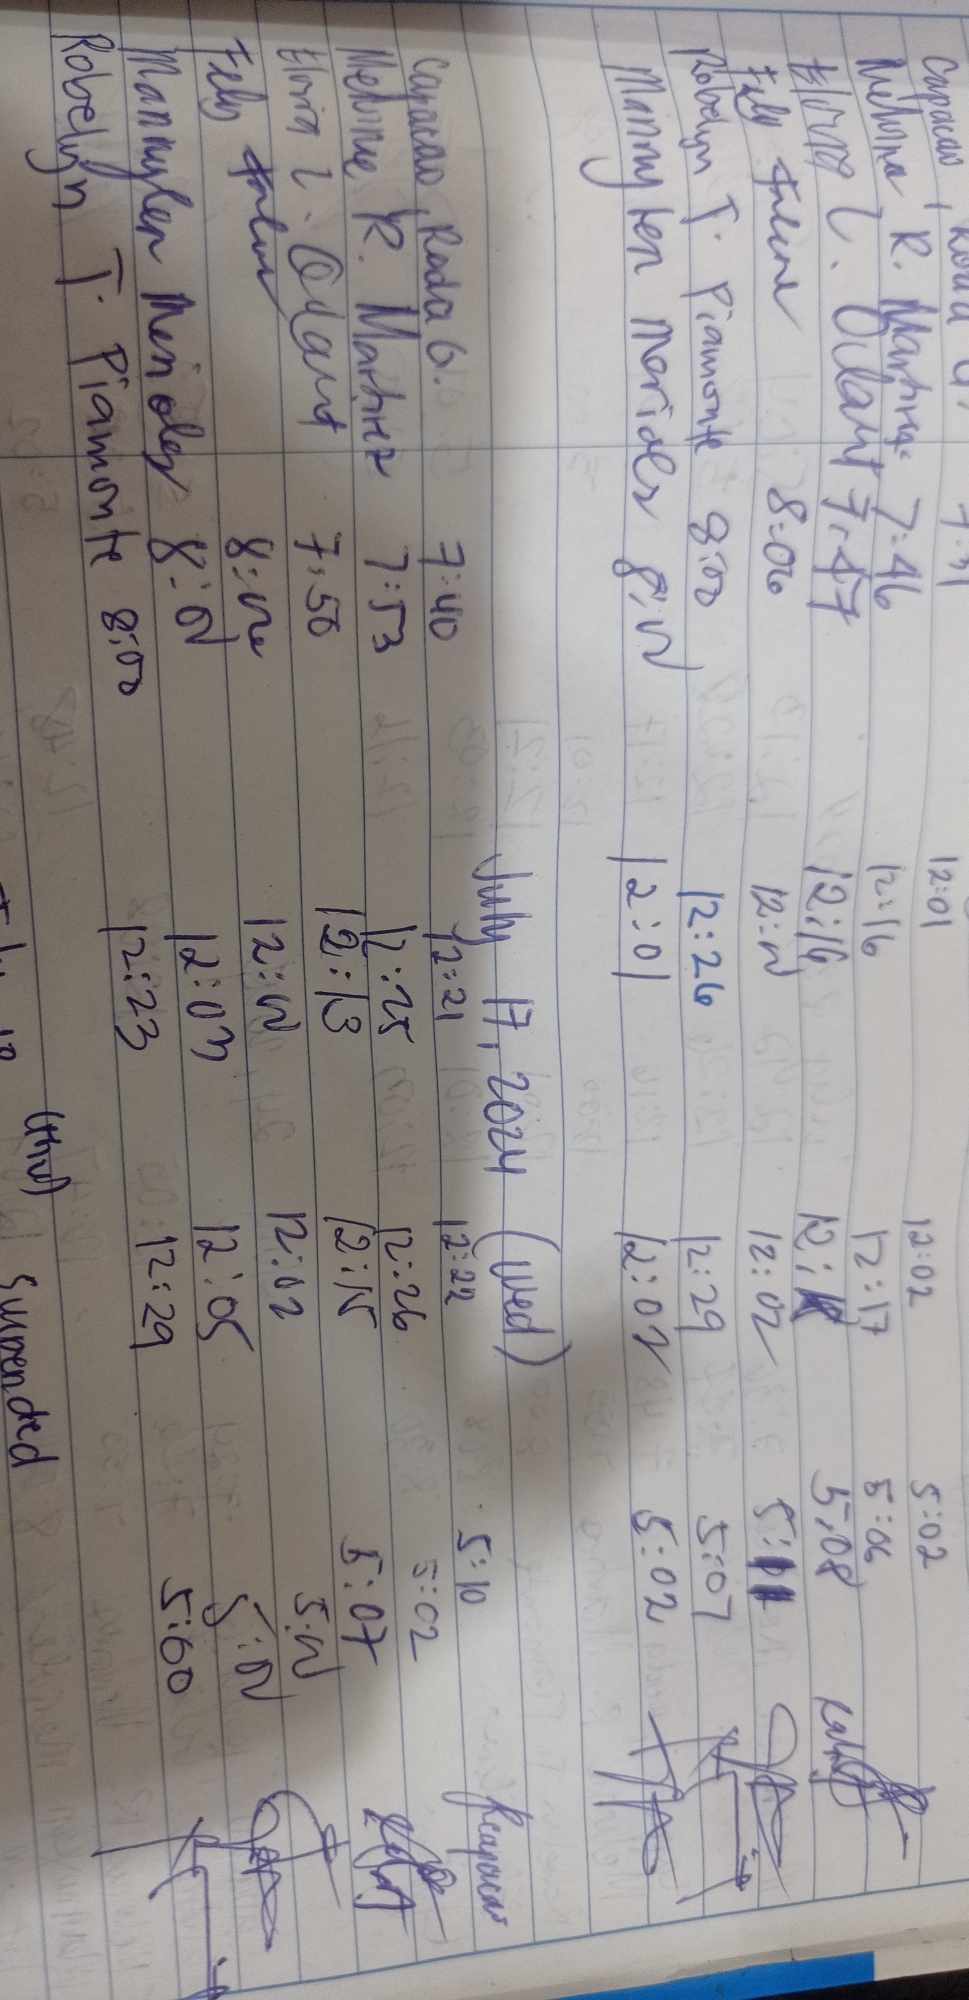 Capacao, Roda G. 7:31 12:01 12:02 5:02
Melorna R. Martinez 7:46 12:16 12:17 5:06
Elvira L. Odant 7:47 12:16 5:08
Fely 8:00 12:02 5:11
Robelyn T. Piamonte 8:00 12:26 12:29 5:07
Mannylen Merioles 8:00 12:01 12:02 5:02
July 17, 2024 (wed)
Capacao, Roda G. 7:40 12:21 12:22 5:10
Melorna R. Martinez 7:53 12:25 12:26 5:02
Elvira L. Odant 7:50 12:13 12:15 5:07
Fely 8:00 12:00 12:02 5:00
Mannylen Merioles 8:00 12:03 12:05 5:00
Robelyn T. Piamonte 8:00 12:23 12:29 5:00
July 18 (thu) Supended